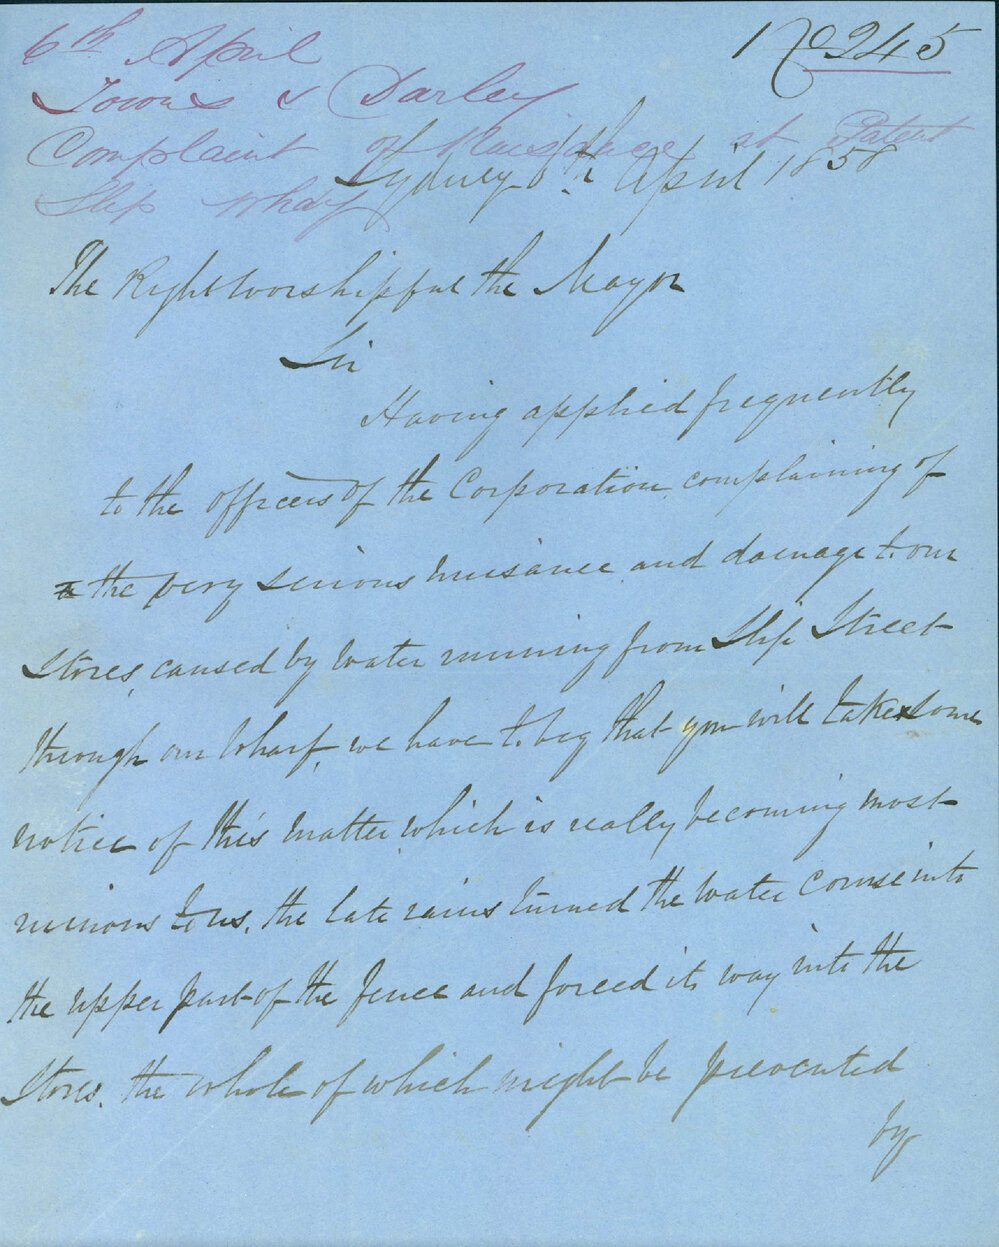 No 245
6th April
Towns & Darley
Complaint of Nuisance at Patent
Slip Wharf
Sydney 6th April 1858
The Right Worshipful the Mayor
Sir
Having applied frequently
to the officers of the Corporation complaining of
the very serious nuisance and damage to our
Stores, caused by water running from Slip Street
through our Wharf, we have to beg that you will take some
notice of this matter which is really becoming most
ruinous to us. the late rains turned the water course into
the upper part of the fence and forced its way into the
Stores. the whole of which might be prevented
by